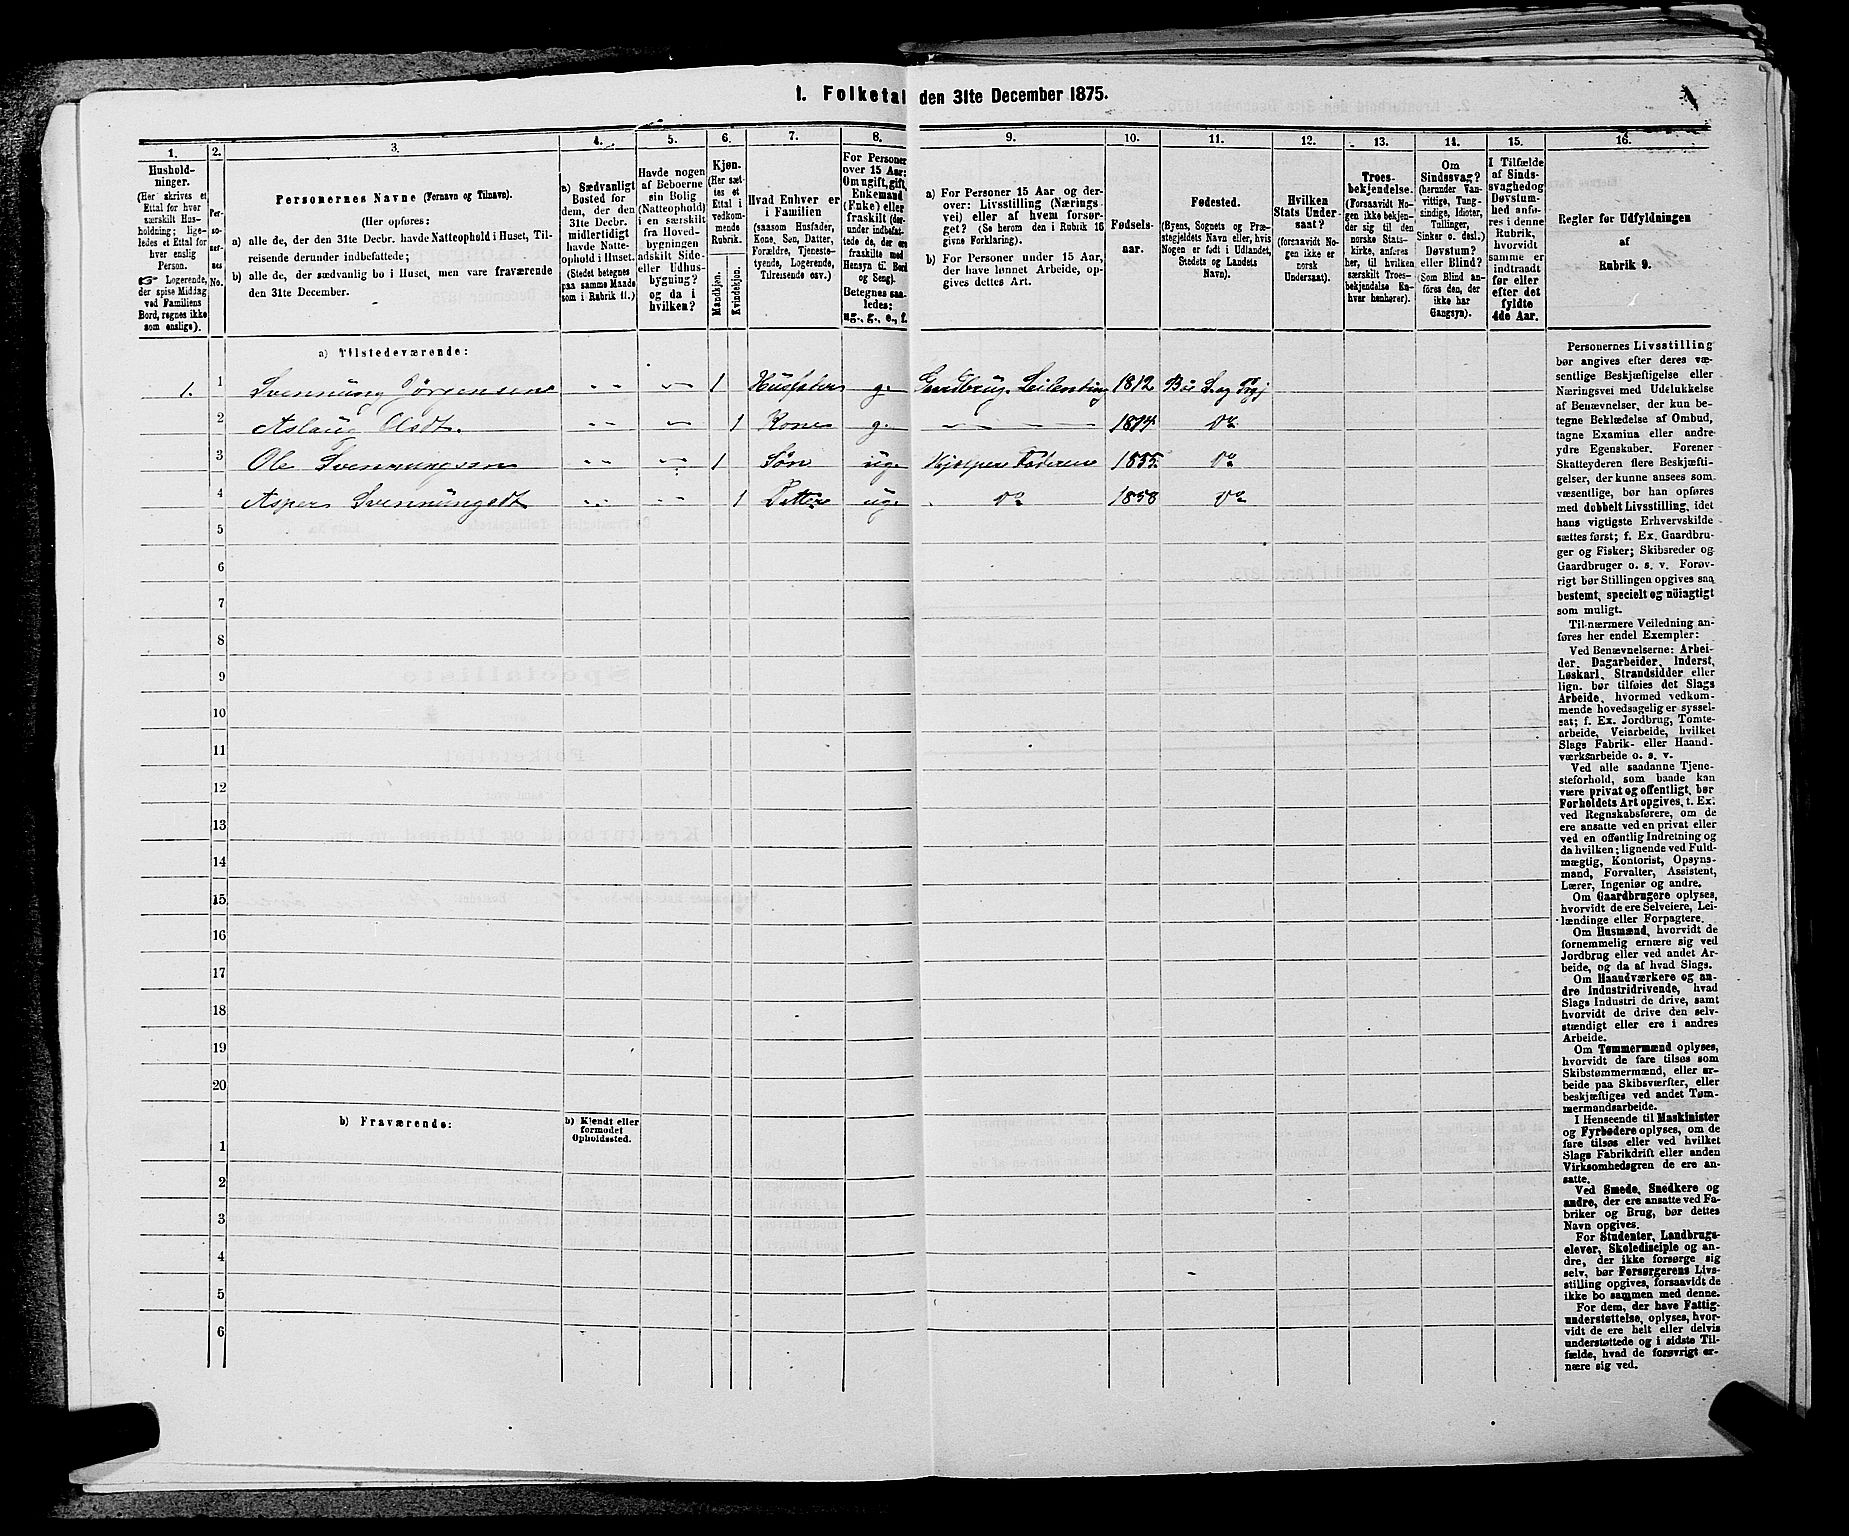 1. Folketal den 31te December 1875.
1.
2.
3.
4.
5.
6.
7.
8.
9.
10.
11.
12.
13.
14.
15.
16.
Hushold-
ninger.
(Her skrives et
Ettal for hver
særskilt Hus-
holdning; lige-
ledes et Ettal for
hver enslig
Person.
☞ Logerende,
der spise Middag
ved Familiens
Bord, regnes ikke
som enslige).
Per-
so-
ner-
nes
No.
Personernes Navne (Fornavn og Tilnavn).
(Her opføres:
a) alle de, der den 31te Decbr. havde Natteophold i Huset, Til-
reisende derunder indbefattede;
b) alle de, der sædvanlig bo i Huset, men vare fraværende
den 31te December.
a) Sædvanligt
Bosted for
dem, der den
31te Decbr.
midlertidigt
havde Natte-
ophold i Huset.
(Stedet betegnes
paa samme Maade
som i Rubrik 11.)
Havde nogen
af Beboerne
sin Bolig
(Natteophold)
i en særskilt
fra Hoved-
bygningen
adskilt Side-
eller Udhus-
bygning?
og da i
hvilken?
Kjøn.
(Her sæt-
tes et
Ettal i
vedkom-
mende
Rubrik.
Mandkjøn.
Kvindekjøn.
Hvad Enhver er
i Familien
(saasom Husfader,
Kone, Søn, Datter,
Forældre, Tjeneste-
tyende, Logerende,
Tilreisende osv.)
For Personer
over 15 Aar:
Om ugift, gift,
Enkemand
(Enke) eller
fraskilt (der-
under indbefat-
tede de, der ere
fraskilte med
Hensyn til Bord
og Seng).
Betegnes saa-
ledes:
ug., g., e., f.
a) For Personer 15 Aar og der-
over: Livsstilling (Nærings-
vei) eller af hvem forsør-
get? (Se herom den i Rubrik 16
givne Forklaring).
b) For Personer under 15 Aar,
der have lønnet Arbeide, op-
gives dettes Art.
Fødsels-
aar.
Fødested.
(Byens, Sognets og Præ-
stegjeldets Navn eller, hvis
Nogen er født i Udlandet,
Stedets og Landets
Navn).
Hvilken
Stats Under-
saat?
(forsaavidt No-
gen ikke er
norsk
Undersaat).
Troes-
bekjendelse.
(Forsaavidt No-
gen ikke bekjen-
der sig til den
norske Stats-
kirke, anføres
her, til hvilken
særskilt Troes-
bekjendelse En-
hver henhører).
Om
Sindssvag?
(herunder Van-
vittige, Tung-
sindige, Idioter,
Tullinger,
Sinker o. desl.)
Døvstum?
eller Blind?
(Som Blind an-
føres den, der
ikke har
Gangsyn).
I Tilfælde
af Sinds-
svaghed og
Døvstum-
hed anfø-
res i denne
Rubrik,
hvorvidt
samme er
indtraadt
før eller
efter det
fyldte
4de Aar.
Regler før Udfyldningen
af
Rubrik 9.
a) Tilstedeværende:
1. 1 Svennung Jørgensen 1 Husfader g. Gaardbrug. Leilending 1812
2 Aslaug Olsdt. 1 Kone g. 1814 Do
3 Ole Svennungsen 1 Søn ug. Hjælper Faderen 1855. Do
4 Svennungsdt 1 ug. Do 1858 Do
5
6
7
8
9
10
11
12
13
14
15
16
17
18
19
20
b) Fraværende:
b) Kjendt eller
formodet
Opholdssted.
1
2
3
4
5
6
Personernes Livsstilling
bør angives efter deres væ-
sentlige Beskjæftigelse eller
Næringsvei med Udelukkelse
af Benævnelser, der kun be-
tegne Beklædelse af Ombud,
tagne Examina eller andre
ydre Egenskaber. Forener
Skatteyderen flere Beskjæfti-
gelser, der kunne ansees som
væsentlige, bør han opføres
med dobbelt Livsstilling, idet
hans vigtigste Erhvervskilde
sættes først; f. Ex. Gaardbru-
ger og Fisker; Skibsreder og
Gaardbruger o. s. v. Forøv-
rigt bør Stillingen opgives saa
bestemt, specielt og nöiagtigt
som muligt.
Til nærmere Veiledning an-
føres her endel Exempler:
Ved Benævnelserne: Arbei-
der, Dagarbeider, Inderst,
Løskarl, Strandsidder eller
lign. bør tilføies det Slags
Arbeide, hvormed vedkom-
mende hovedsagelig er syssel-
sat; f. Ex. Jordbrug, Tomte-
arbeide, Veiarbeide, hvilket
Slags Fabrik- eller Haand-
værksarbeide o. s. v.
Ved alle saadanne Tjene-
steforhold, som baade kan
være privat og offentligt, bør
Forholdets Art opgives, t. Ex.
ved Regnskabsførere, om de
ere ansatte ved en privat eller
ved en offentlig Indretning og
da hvilken; lignende ved Fuld-
mægtig, Kontorist, Opsyns-
mand, Forvalter, Assistent,
Lærer, Ingeniør og andre.
Om Gaardbrugere oplyses,
hvorvidt de ere Selveiere, Lei-
lændinge eller Forpagtere.
Om Husmænd, hvorvidt de
fornemmelig ernære sig ved
Jordbrug eller ved andet Ar-
beide, og da af hvad Slags.
Om Haandværkere og an-
dre Industridrivende, hvad
Slags Industri de drive, samt
hvorvidt de drive den selv-
stændigt eller ere i andres
Arbeide.
Om Tømmermænd oplyses,
hvorvidt de fare tilsøs som
Skibstømmermænd, eller ar-
beide paa Skibsværfter, eller
beskjæftiges ved andet Tøm-
mermandsarbeide.
I Henseende til Maskinister
og Fyrbødere oplyses, om de
fare tilsøs eller ved hvilket
Slags Fabrikdrift eller anden
Virksomhedsgren de ere an-
satte.
Ved Smede, Snedkere og
andre, der ere ansatte ved Fa-
briker og Brug, bør dettes
Navn opgives.
For Studenter, Landbrugs-
elever, Skoledisciple og an-
dre, der ikke forsørge sig
selv, bør Forsørgerens Livs-
stilling opgives, forsaavidt de
ikke bo sammen med denne.
For dem, der have Fattig-
understøttelse, oplyses, hvor-
vidt de ere helt eller delvis
understøttede og i sidste Til-
fælde, hvad de forøvrigt er-
nære sig ved.